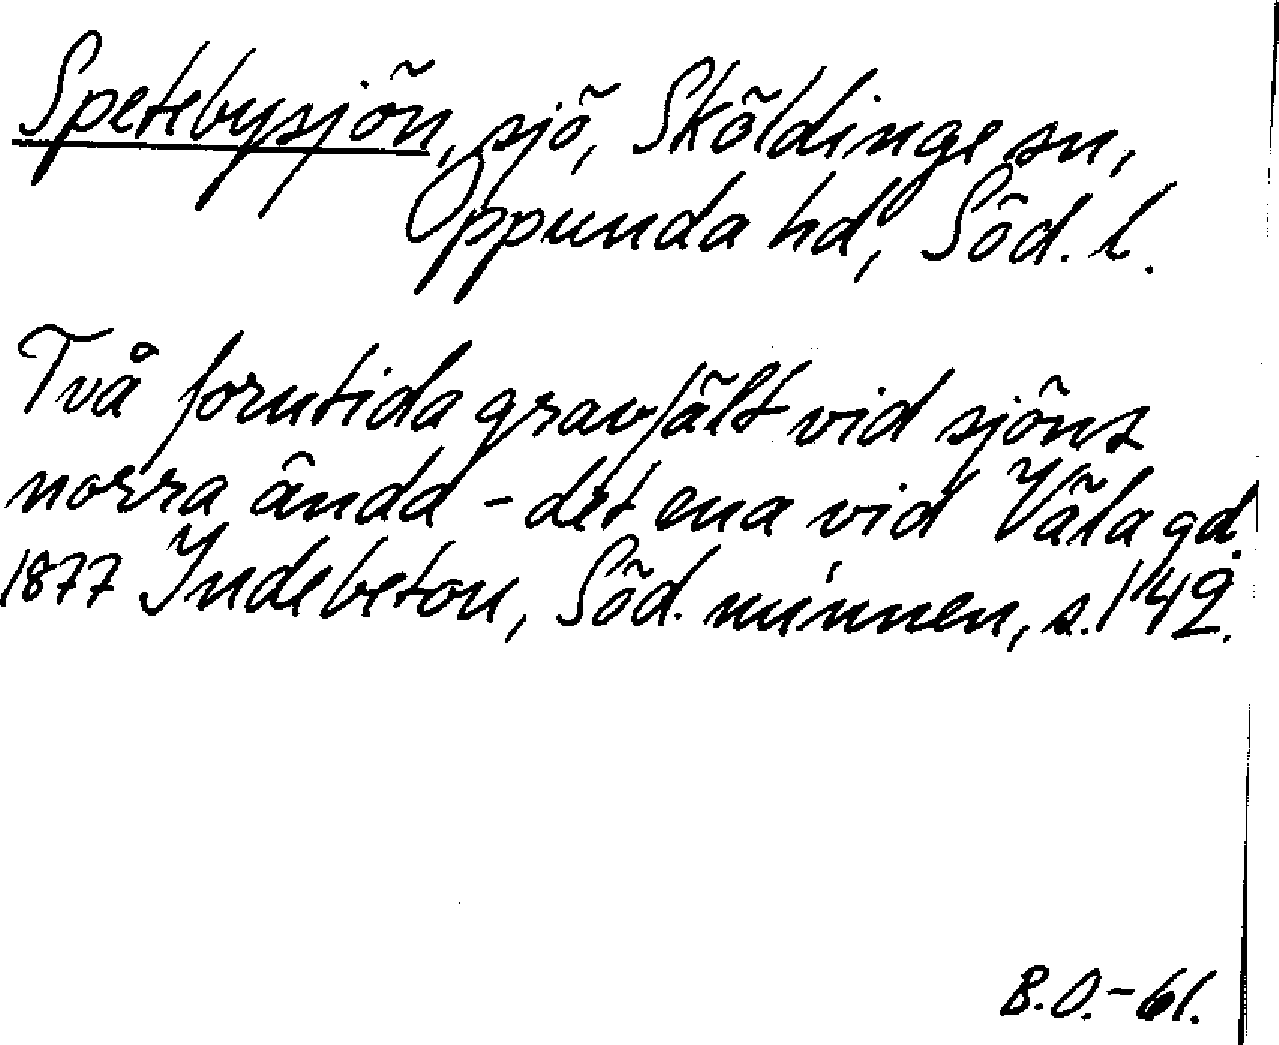 Spetebysjön, sjö, Sköldinge sn,
Oppunda hd, Söd. l.
Två forntida gravfält vid sjöns
norra ända - det ena vid Väla gd.
1877 Indebetou, Söd. minnen, s. 149.
B.O.-61.